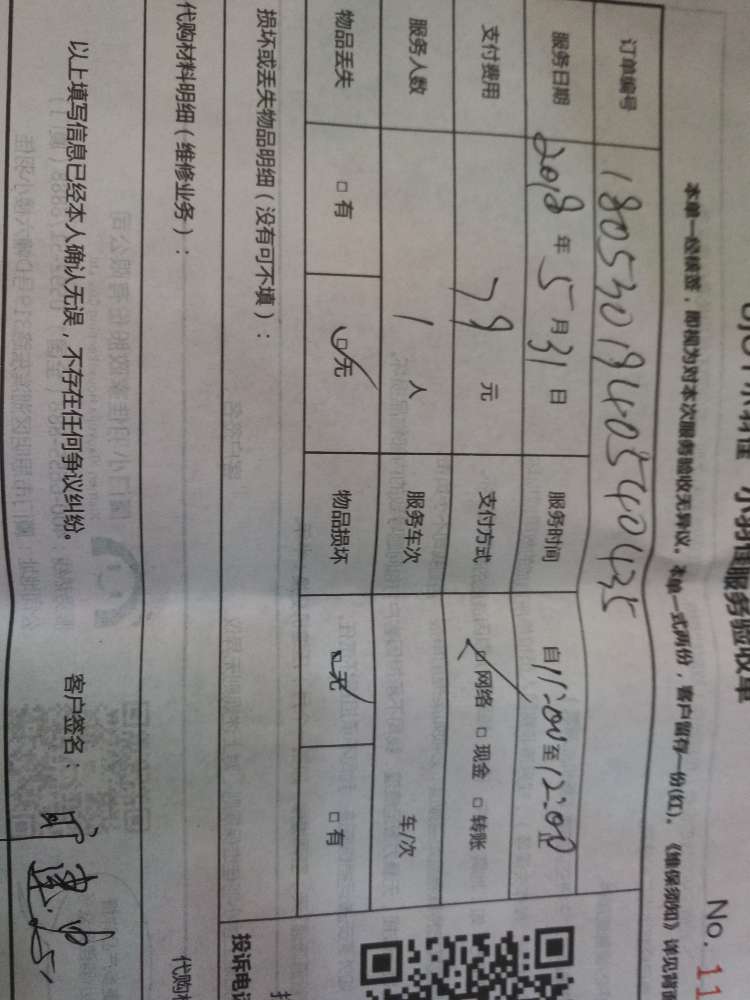 服务验收单
No. 11
本单一经核签，即视为对本次服务验收无异议。本单一式两份，客户留存一份(红)。《维保须知》详见背
订单编号 180530194054 0435
服务日期 2018 年 5 月 31 日 服务时间 自 11:00 至 12:00 止
支付费用 79 元 支付方式 ☑ 网络 □ 现金 □ 转账
服务人数 1 人 服务车次 车/次
物品丢失 □ 有 ☑ 无 物品损坏 ☑ 无 □ 有
损坏或丢失物品明细（没有可不填）：
投诉电
代购材料明细（维修业务）：
代购
以上填写信息已经本人确认无误，不存在任何争议纠纷。 客户签名：